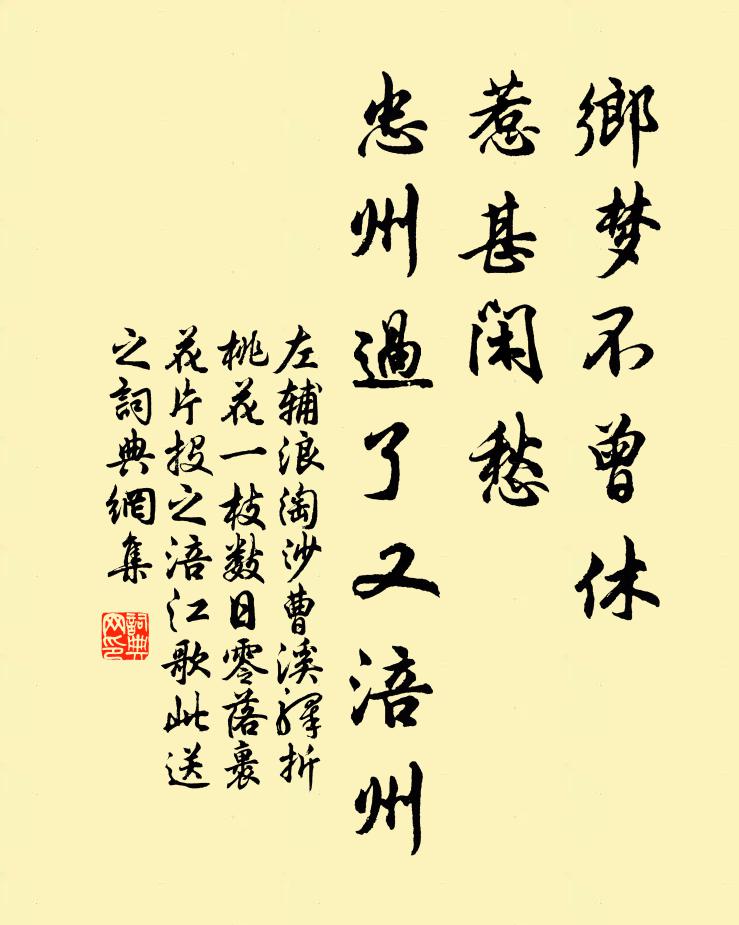 鄉梦不曾休
惹甚閑愁
忠州過了又涪州
左輔浪淘沙曹溪驛折
桃花一枝数日零落裹
花片投之涪江歌此送
之詞典網集
詞典
网印